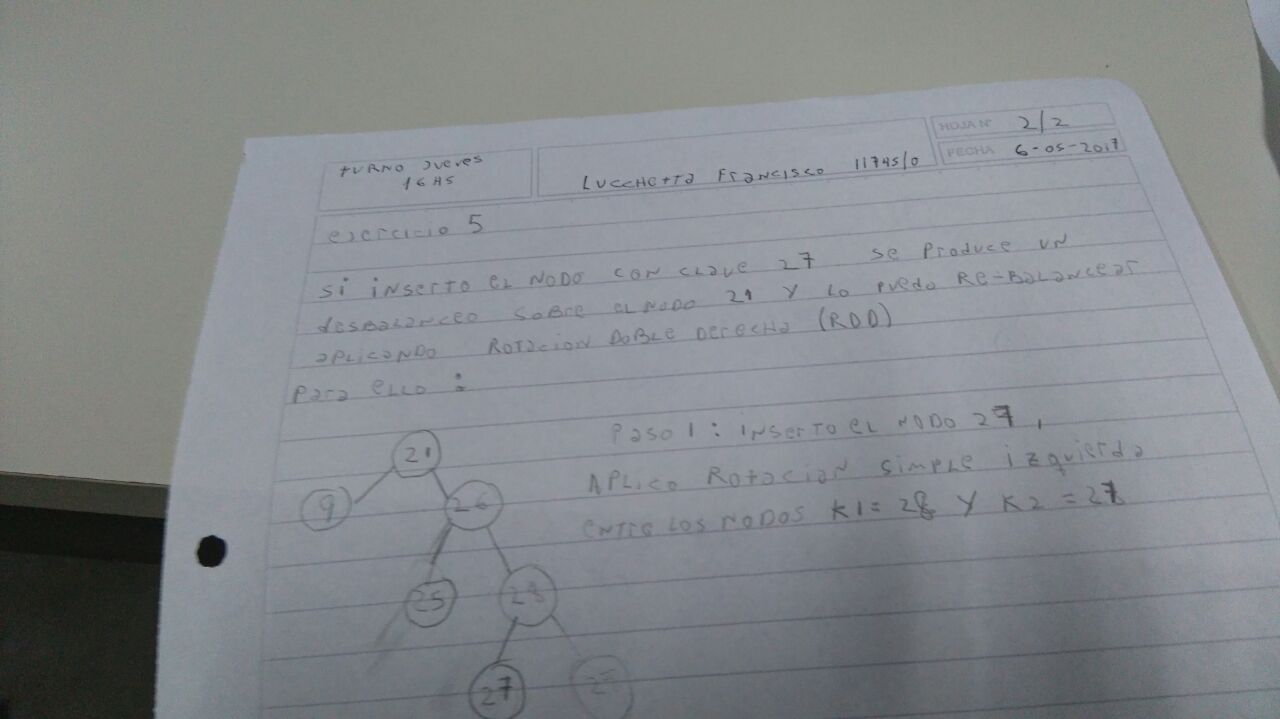 turno Jueves
16 HS
Lucchetta Francisco 11745/0
HOJA Nº 2/2
FECHA 6-05-2017
ejercicio 5
si inserto el nodo con clave 27 se produce un
desbalanceo sobre el nodo 21 y lo puedo Re-Balancear
aplicando Rotacion Doble Derecha (RDD)
para ello :
Paso 1 : inserto el nodo 27,
Aplico Rotacion simple izquierda
entre los nodos K1 = 28 y K2 = 27
21
9
26
25
28
27